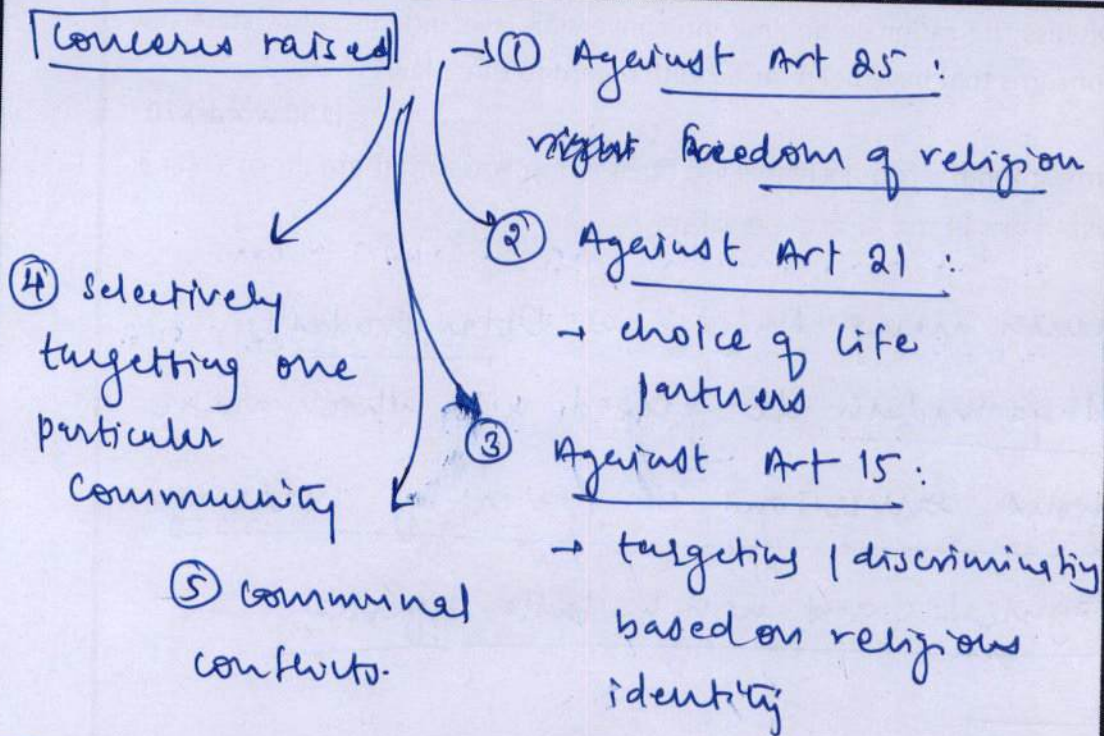 Concerns raised
→ ① Against Art 25 :
freedom of religion
② Against Art 21 :
→ choice of life
partners
③ Against Art 15 :
→ targeting / discriminating
based on religious
identity
④ selectively
targetting one
particular
community
⑤ communal
conflicts.